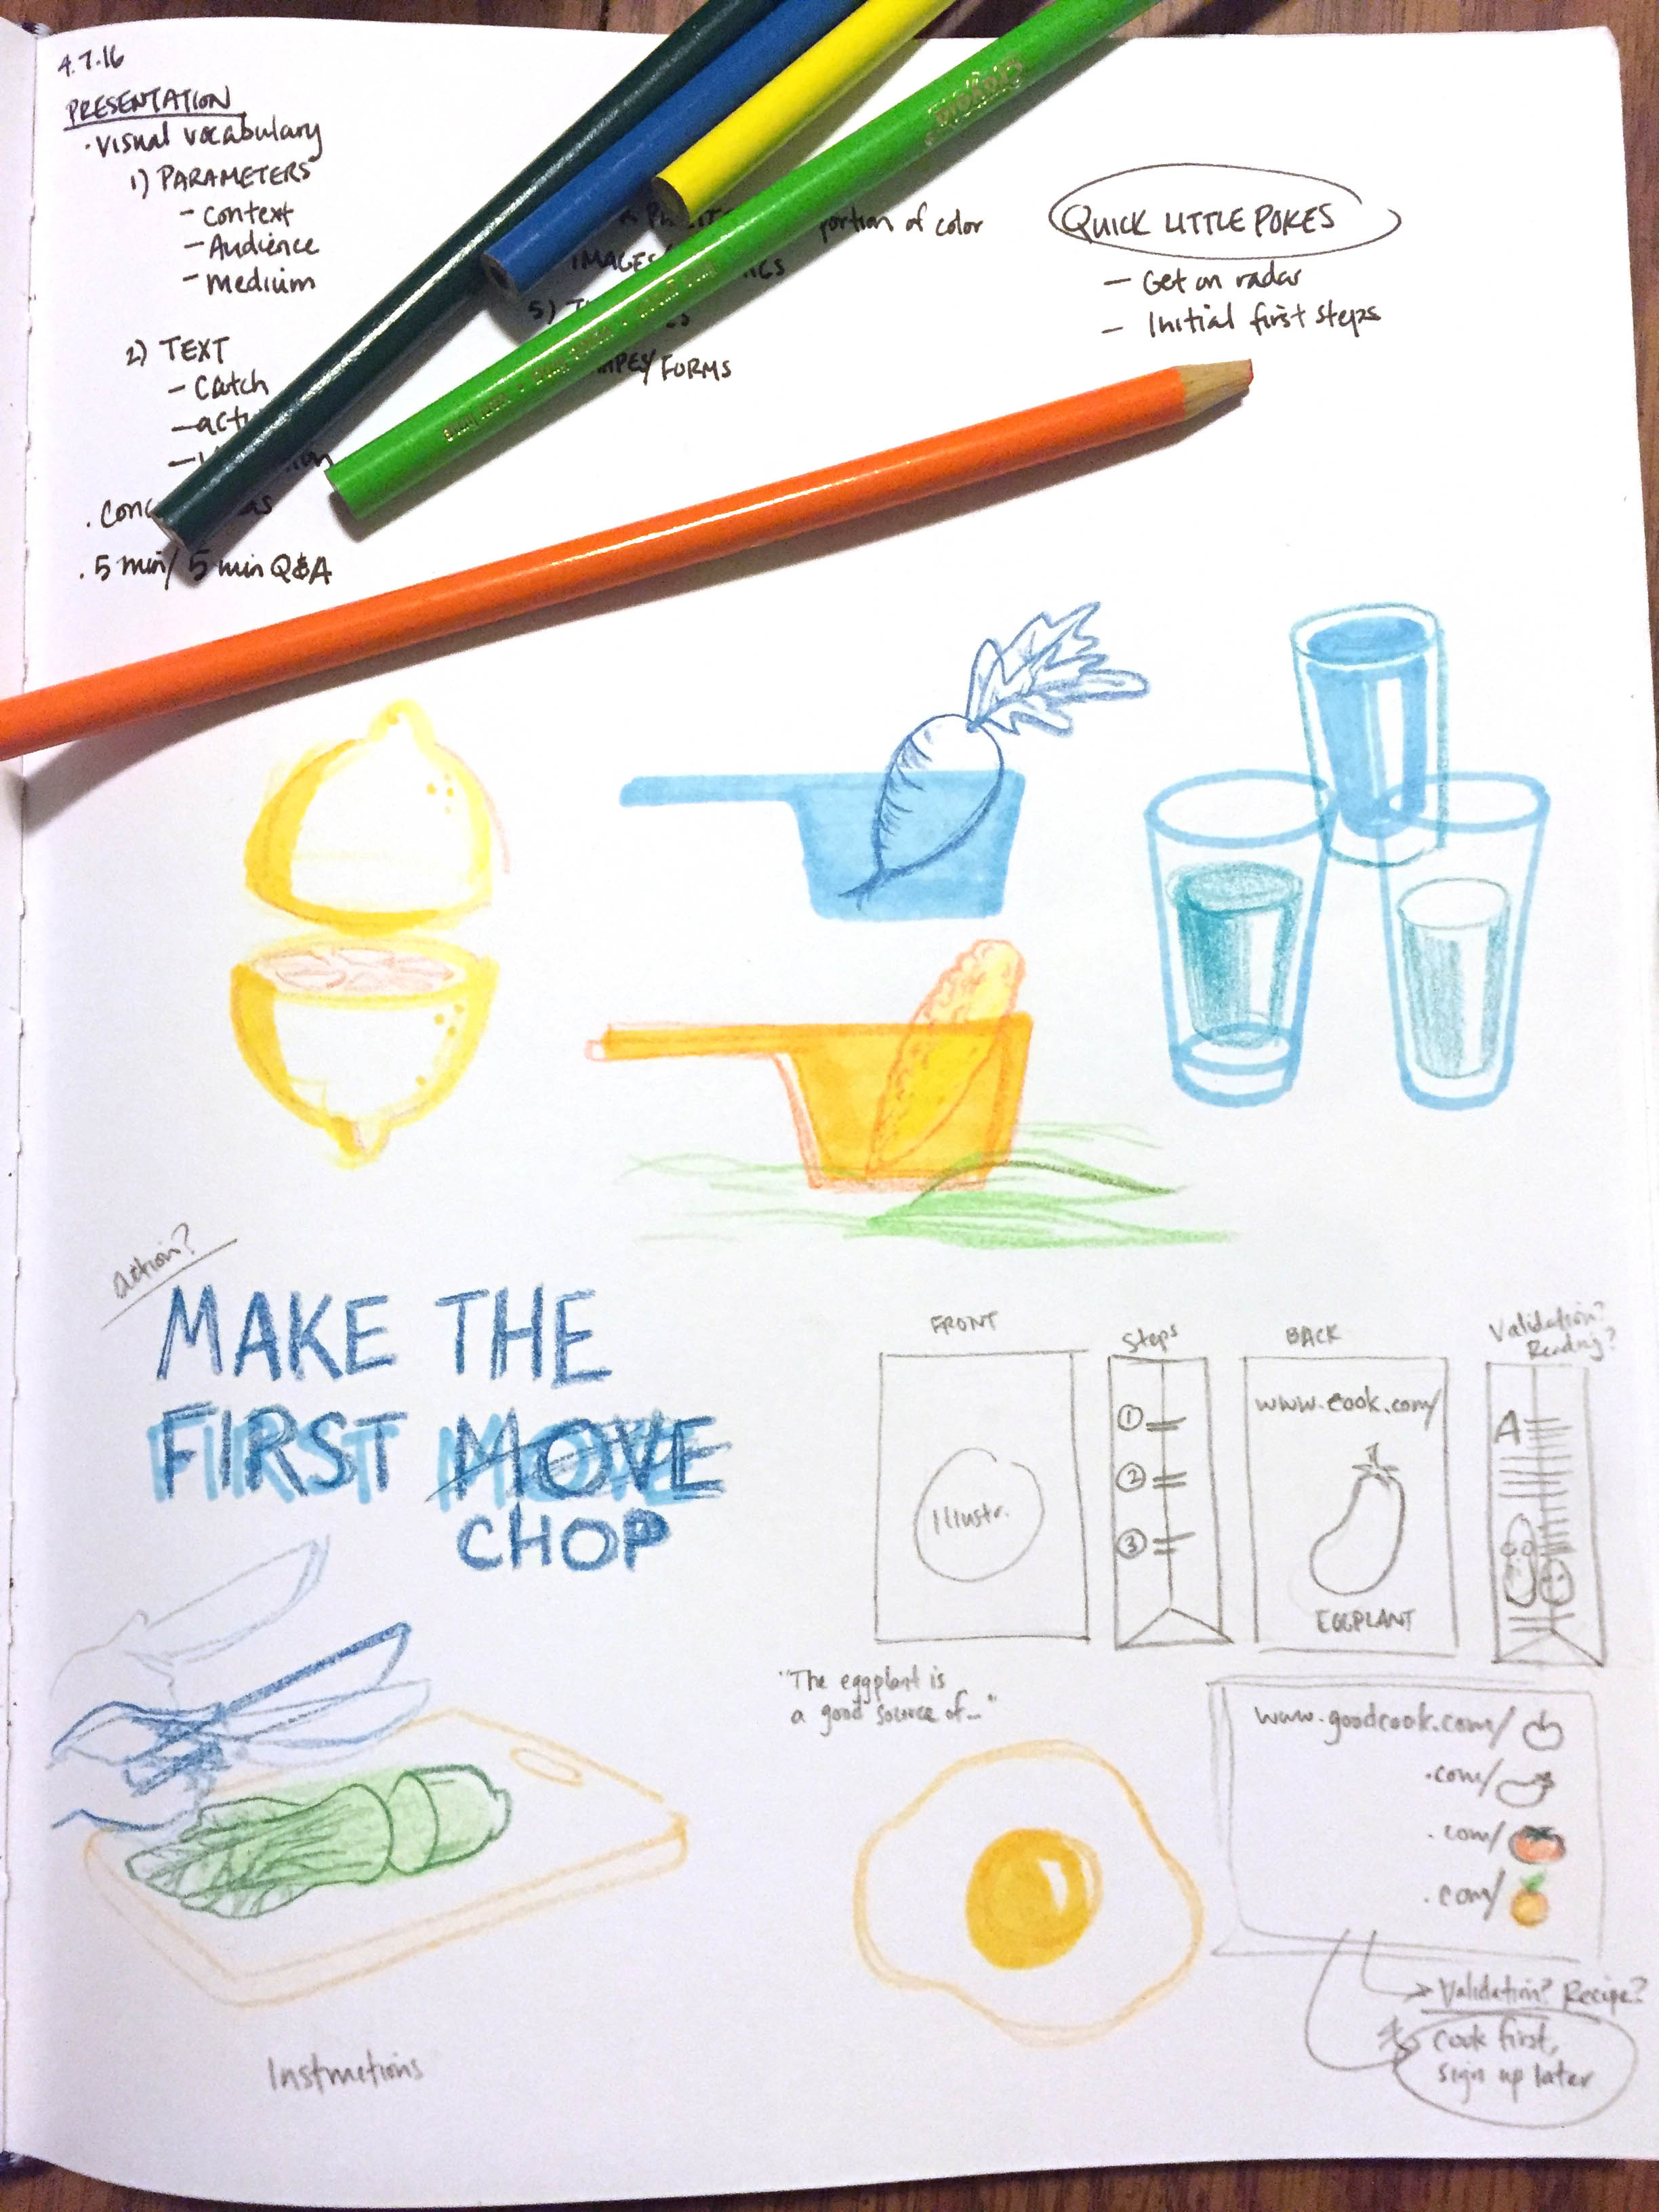 4.7.16
PRESENTATION
· Visual vocabulary
1) PARAMETERS
- Context
- Audience
- Medium
2) TEXT
- Catch
. 5 min/ 5 min Q&A
of color
5)
FORMS
Crayola
QUICK LITTLE POKES
- Get on radar
- Initial first steps
action?
MAKE THE
FIRST MOVE
CHOP
Instructions
FRONT
Illustr.
Steps
1
2
3
BACK
www.cook.com/
EGGPLANT
Validation?
Reading?
A
"The eggplant is
a good source of..."
www.goodcook.com/
.com/
.com/
.com/
Validation? Recipe?
Cook first,
sign up later